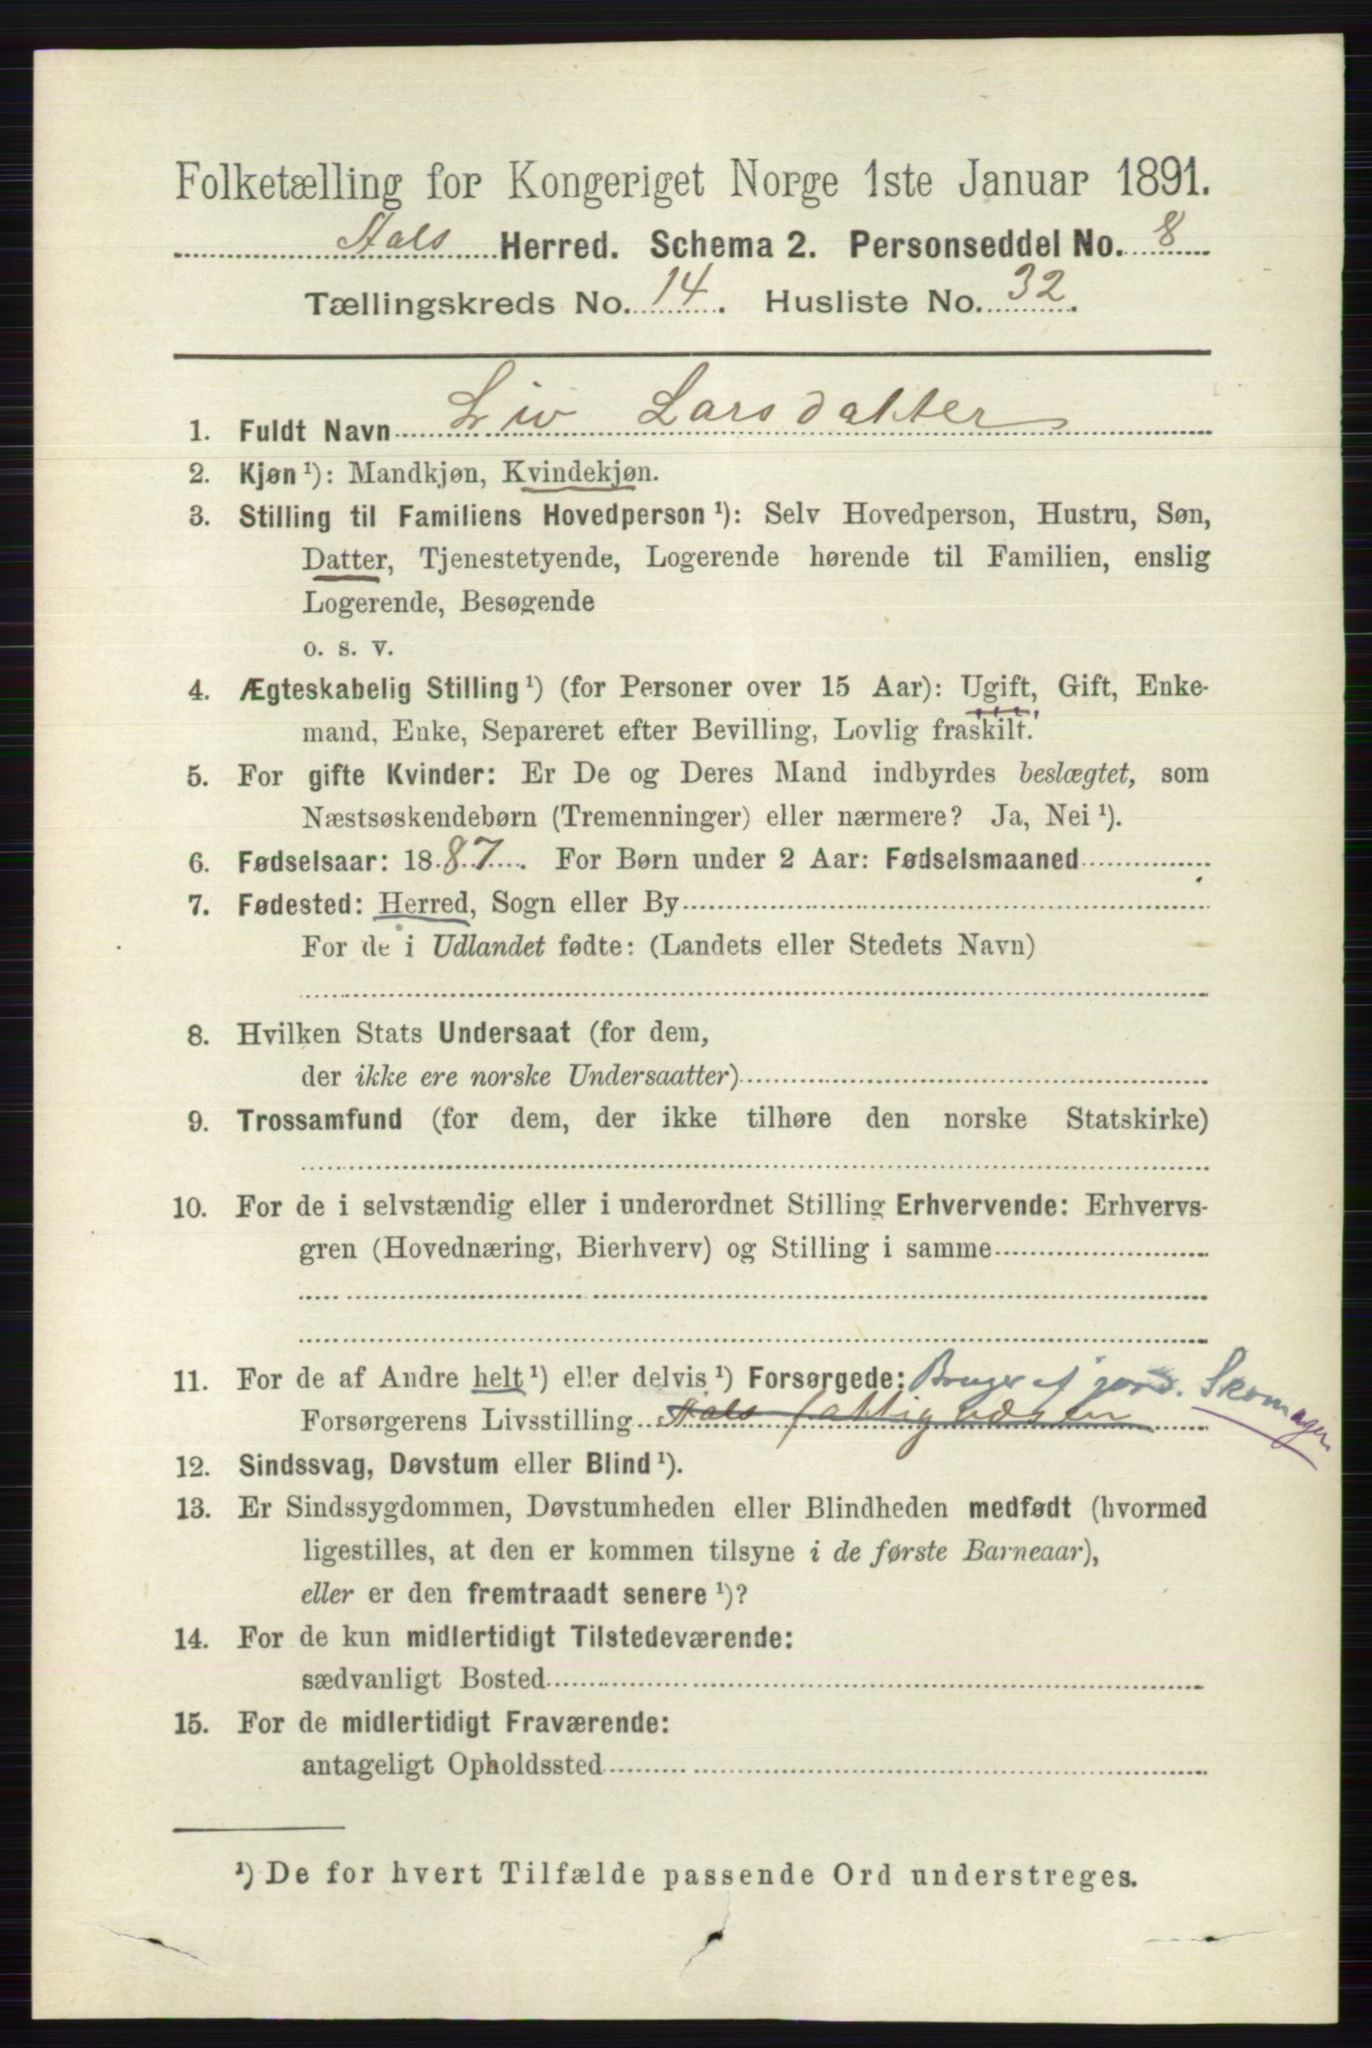 Folketælling for Kongeriget Norge 1ste Januar 1891.
Aals Herred. Schema 2. Personseddel No. 8
Tællingskreds No. 14. Husliste No. 32.
1. Fuldt Navn Liv Larsdatter
2. Kjøn ¹): Mandkjøn, Kvindekjøn.
3. Stilling til Familiens Hovedperson ¹): Selv Hovedperson, Hustru, Søn,
Datter, Tjenestetyende, Logerende hørende til Familien, enslig
Logerende, Besøgende
o. s. v.
4. Ægteskabelig Stilling ¹) (for Personer over 15 Aar): Ugift, Gift, Enke-
mand, Enke, Separeret efter Bevilling, Lovlig fraskilt.
5. For gifte Kvinder: Er De og Deres Mand indbyrdes beslægtet, som
Næstsøskendebørn (Tremenninger) eller nærmere? Ja, Nei ¹).
6. Fødselsaar: 1887. For Børn under 2 Aar: Fødselsmaaned
7. Fødested: Herred, Sogn eller By
For de i Udlandet fødte: (Landets eller Stedets Navn)
8. Hvilken Stats Undersaat (for dem,
der ikke ere norske Undersaatter)
9. Trossamfund (for dem, der ikke tilhøre den norske Statskirke)
10. For de i selvstændig eller i underordnet Stilling Erhvervende: Erhvervs-
gren (Hovednæring, Bierhverv) og Stilling i samme
11. For de af Andre helt ¹) eller delvis ¹) Forsørgede: Bruger af jord. Skomager
Forsørgerens Livsstilling Aals fattigvæsen
12. Sindssvag, Døvstum eller Blind ¹).
13. Er Sindssygdommen, Døvstumheden eller Blindheden medfødt (hvormed
ligestilles, at den er kommen tilsyne i de første Barneaar),
eller er den fremtraadt senere ¹)?
14. For de kun midlertidigt Tilstedeværende:
sædvanligt Bosted
15. For de midlertidigt Fraværende:
antageligt Opholdssted
¹) De for hvert Tilfælde passende Ord understreges.